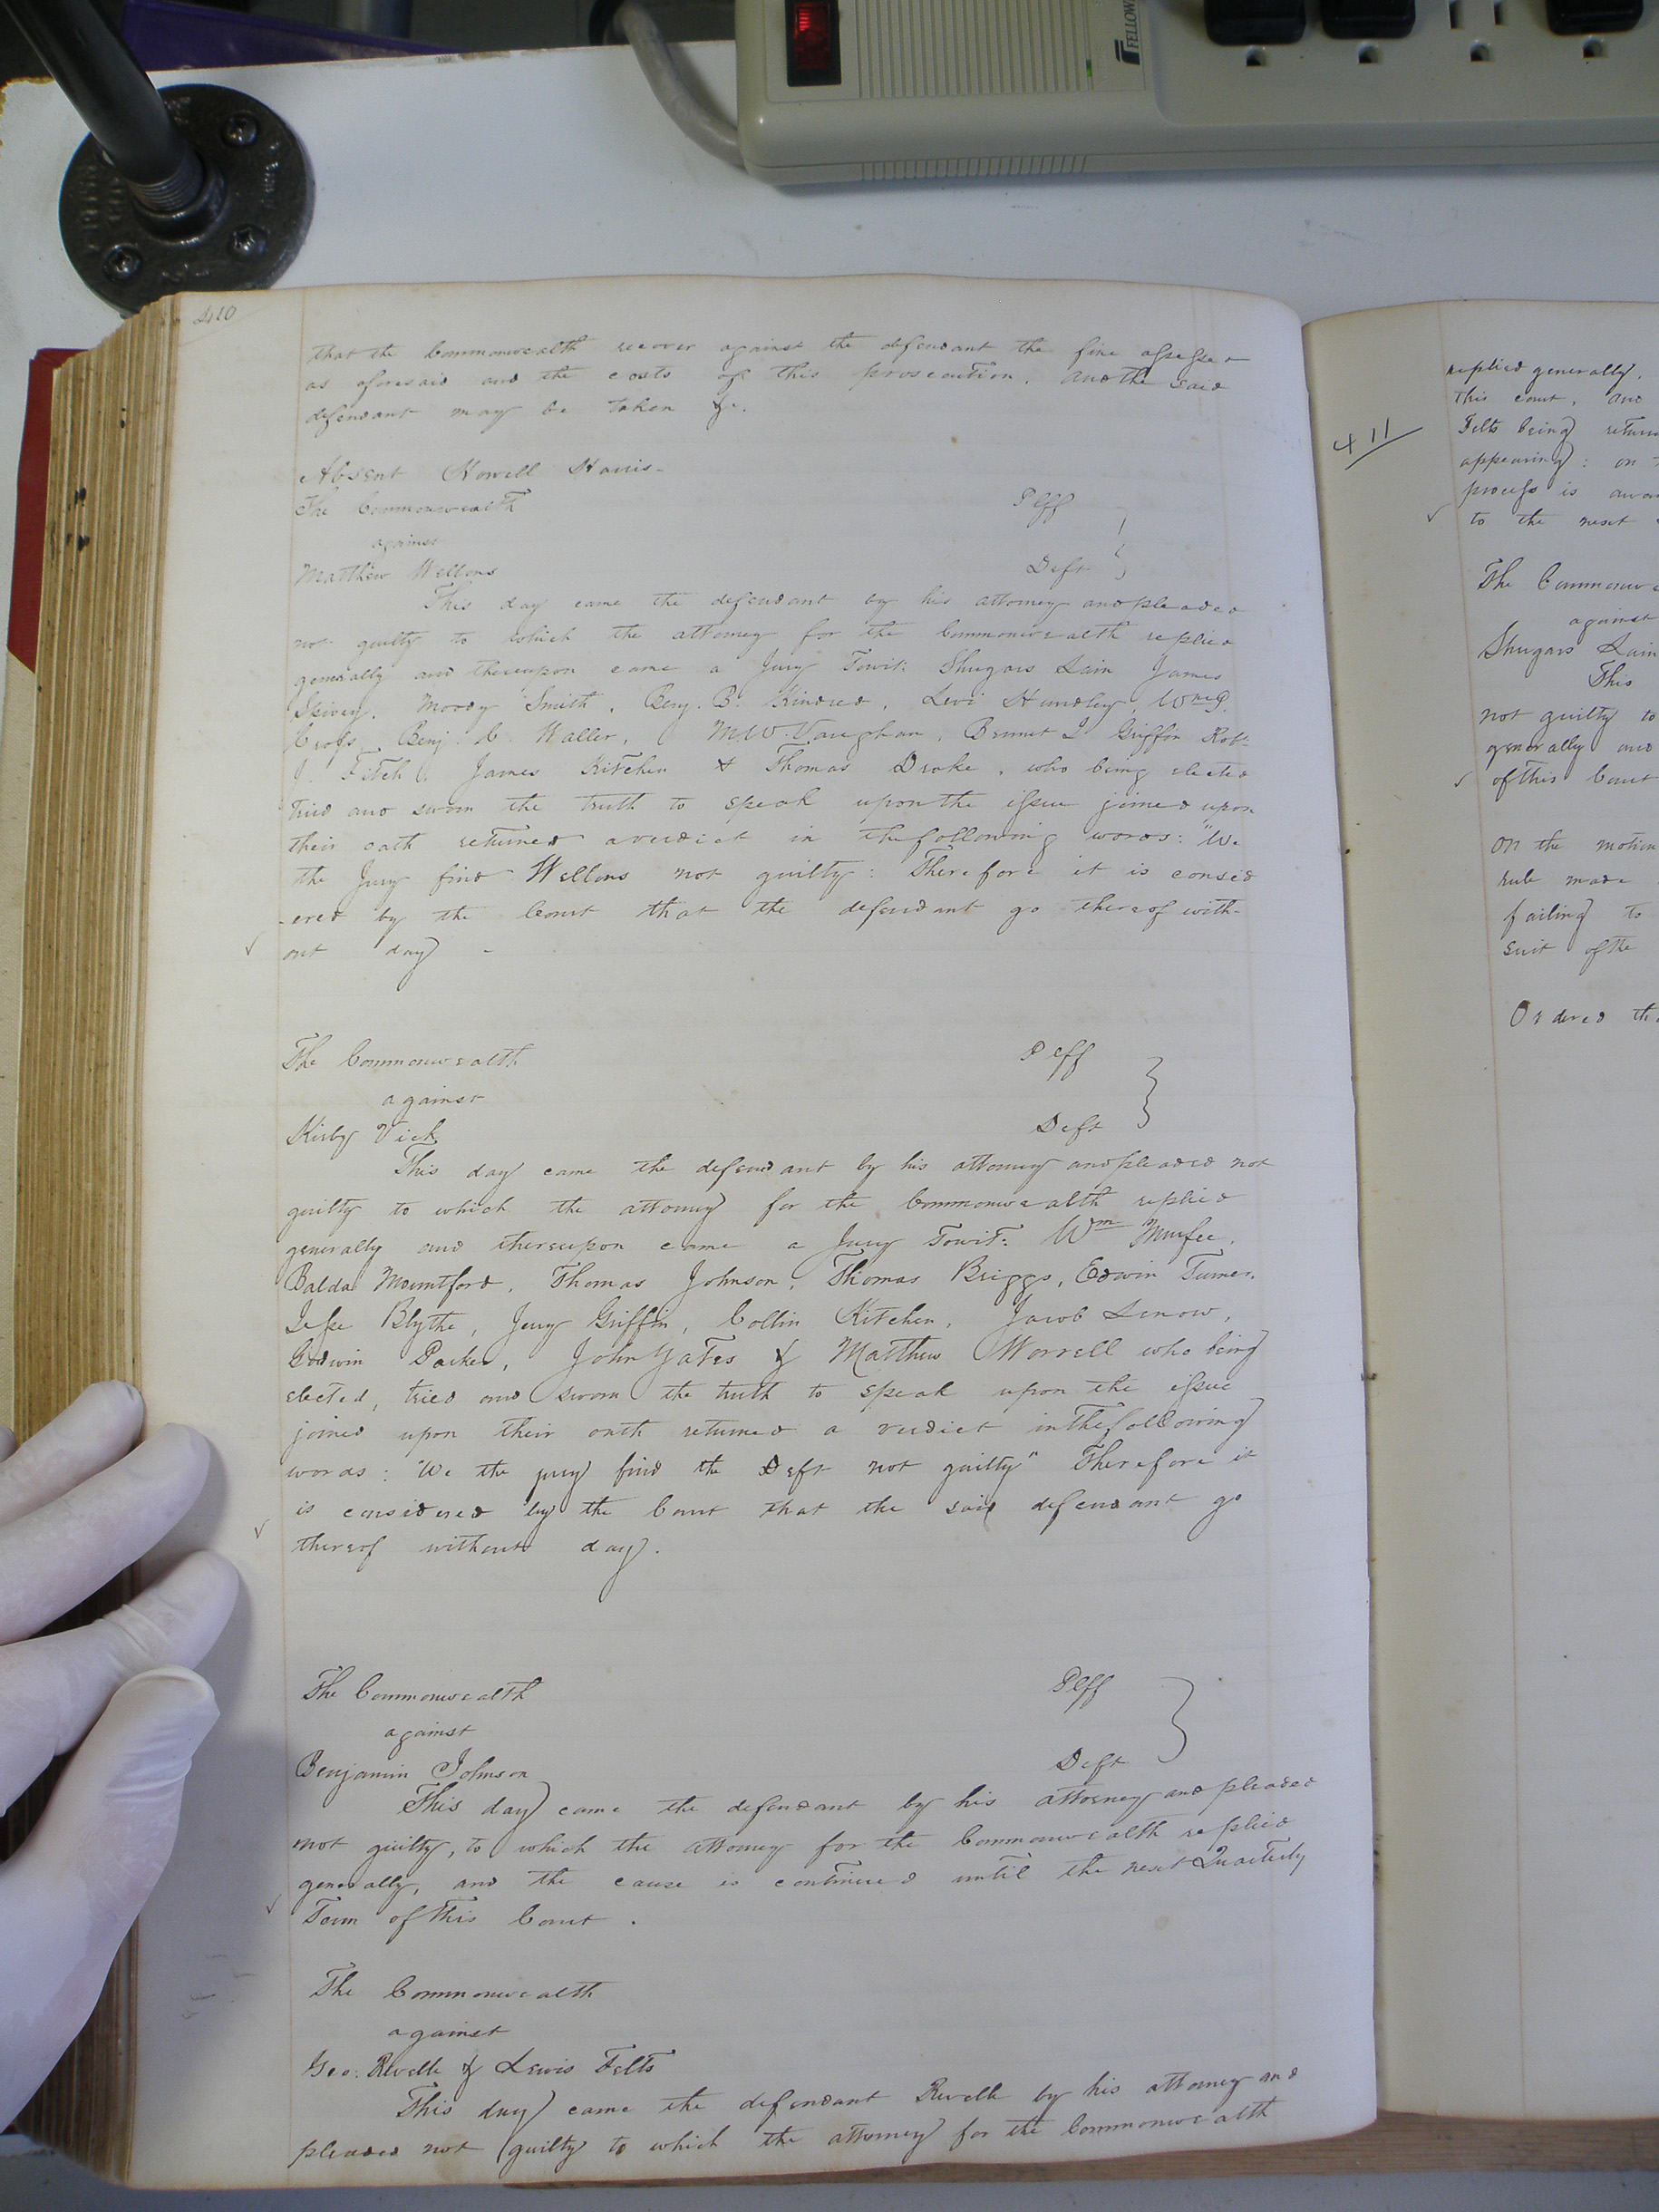 FELLOW
410
that the Commonwealth recover against the defendant the fine assessed
as aforesaid and the costs of this prosecution. and the said
defendant may be taken &c.
Absent Howell Harris-
The Commonwealth Plff
against
Matthew Wellons Deft
This day came the defendant by his attorney and pleaded
not guilty to which the attorney for the Commonwealth replied
generally and thereupon came a Jury Towit: Shugars Lain James
Spivey, Moody Smith, Benj. B. Kindred, Levi Hundley, Wm G.
Cross, Benj. C. Waller, M W Vaughan, Griffin Robt
J. Fitch, James Kitchen & Thomas Drake, who being elected
tried and sworn the truth to speak upon the issue joined upon
their oath returned a verdict in the following words: "We
the Jury find Wellons not guilty: Therefore it is consid
-ered by the Court that the defendant go thereof with-
out day -
The Commonwealth Plff
against
Kirby Vick Deft
This day came the defendant by his attorney and pleaded not
guilty to which the attorney for the Commonwealth replied
generally and thereupon came a Jury Towit: Wm Murfee,
Balda Mountford, Thomas Johnson, Thomas Briggs, Edwin Turner,
Jesse Blythe, Jerry Griffin, Collin Kitchen, Jacob Lenow,
Godwin Parker, John Yates & Matthew Worrell who being
elected, tried and sworn the truth to speak upon the issue
joined upon their oath returned a verdict in the following
words: "We the jury find the Deft not guilty" Therefore it
is considered by the Court that the said defendant go
thereof without day.
The Commonwealth Plff
against
Benjamin Johnson Deft
This day came the defendant by his attorney and pleaded
not guilty, to which the attorney for the Commonwealth replied
generally, and the cause is continued until the next Quarterly
Term of this Court.
The Commonwealth
against
Geo: Revelle & Lewis Felts
This day came the defendant Revelle by his attorney and
pleaded not guilty to which the attorney for the Commonwealth
411
replied generally.
this court, and
Felts being return
appearing: on
process is awa
to the next
The Commonwe
against
Shugars Lain
This
not guilty to
generally and
of this Court
On the motion
rule made
failing to
suit of the
Ordered th